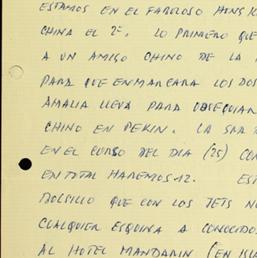 ESTAMOS EN EL FABULOSO HONG K
CHINA EL 2º. LO PRIMERO QUE
A UN AMIGO CHINO DE LA
PARA QUE ENMARCARA LOS DOS
AMALIA LLEVA PARA OBSEQUIAR
CHINO EN PEKIN. LA SRA
EN EL CURSO DEL DIA (25) CON
EN TOTAL HAREMOS 12. EST
BOLSILLO QUE CON LOS TETS NO
CUALQUIER ESQUINA A CONOCIDOS
AL HOTEL MANDARIN (EN ISLA